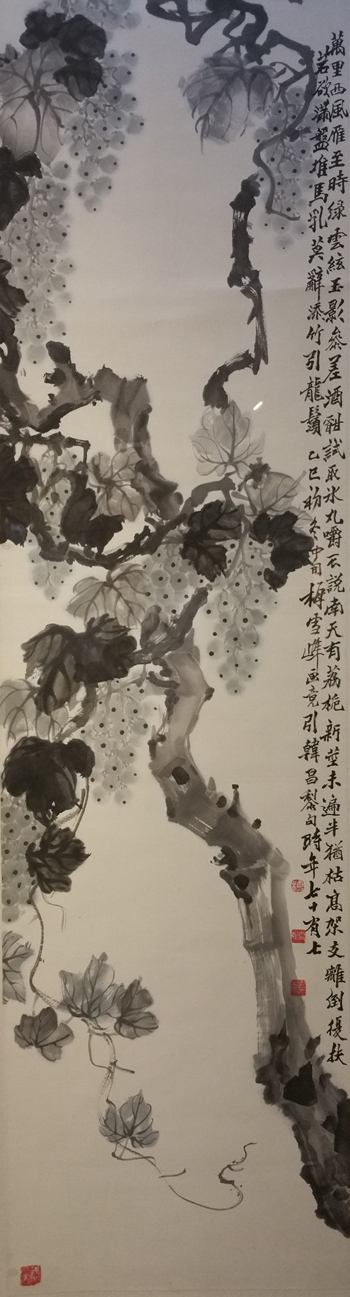 萬里西風雁至時綠雲絃玉影參差酒酣試取冰丸嚼不說南天有荔枝新莖未遍半猶枯高架支離倒復扶
若欲滿盤堆馬乳莫辭添竹引龍鬚乙巳初冬中旬梅雪峰画竟引韓昌黎句時年七十有七